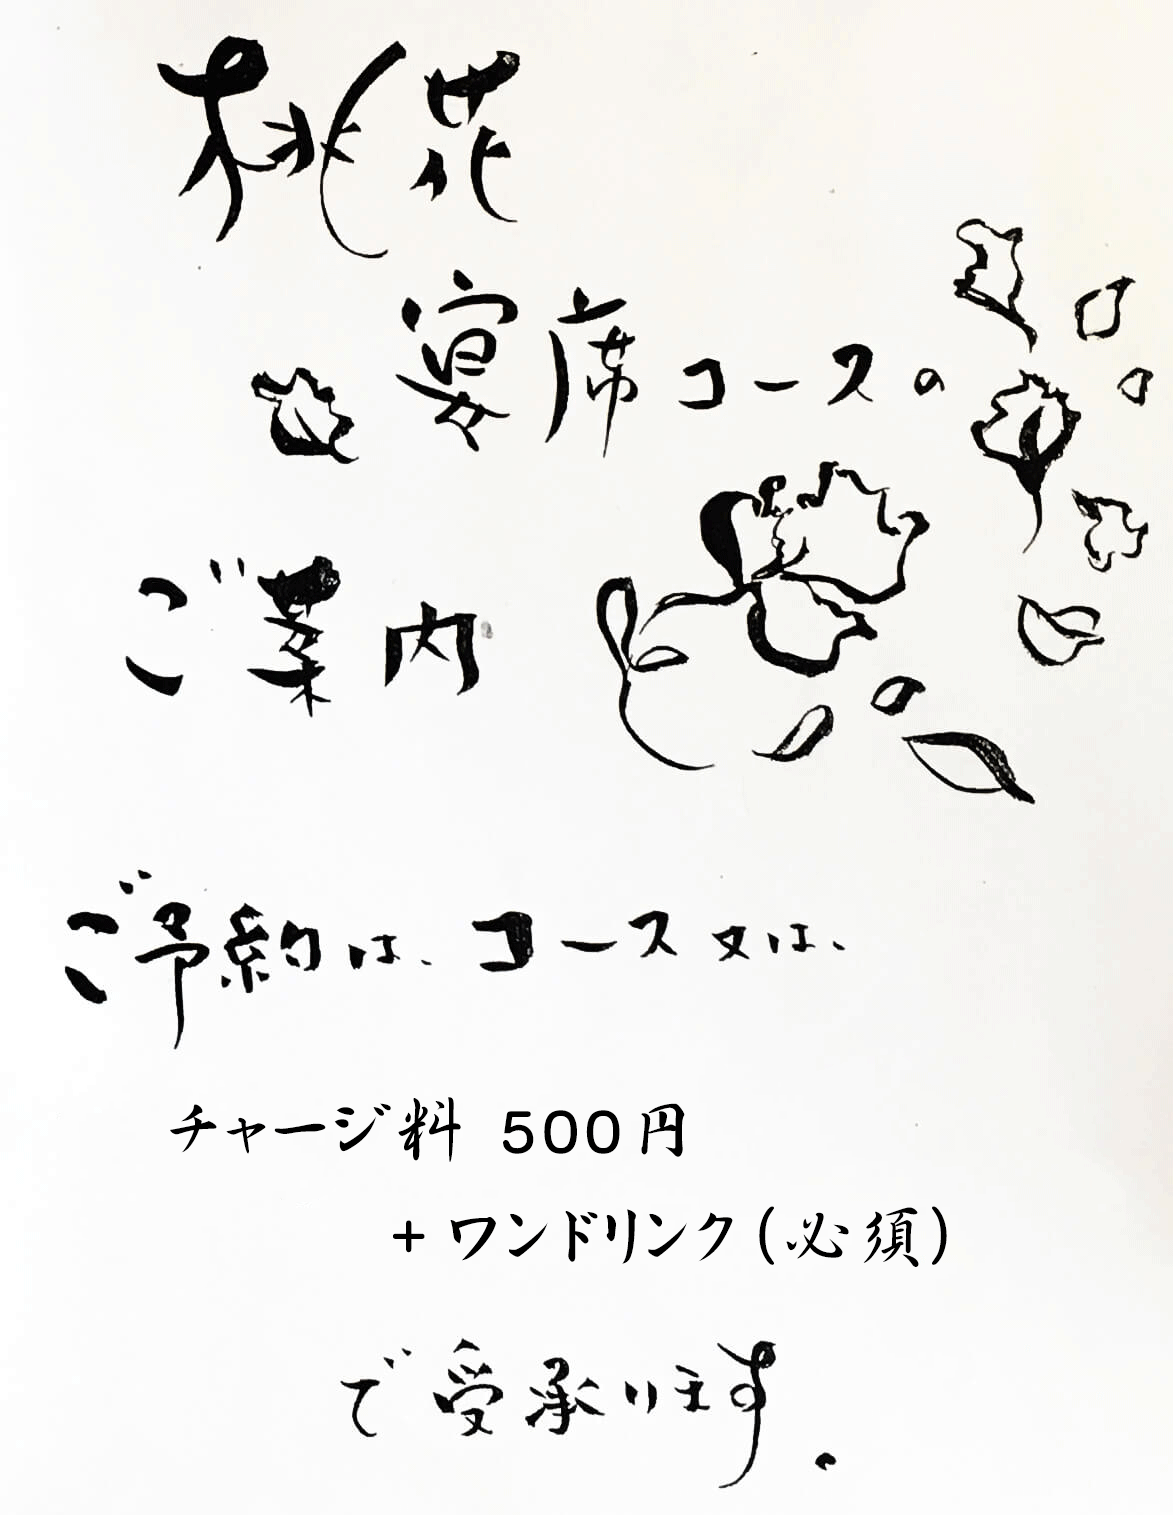 桃花
宴席コースの
ご案内
ご予約は、コース又は、
チャージ料 500円
+ワンドリンク(必須)
で受承ります。